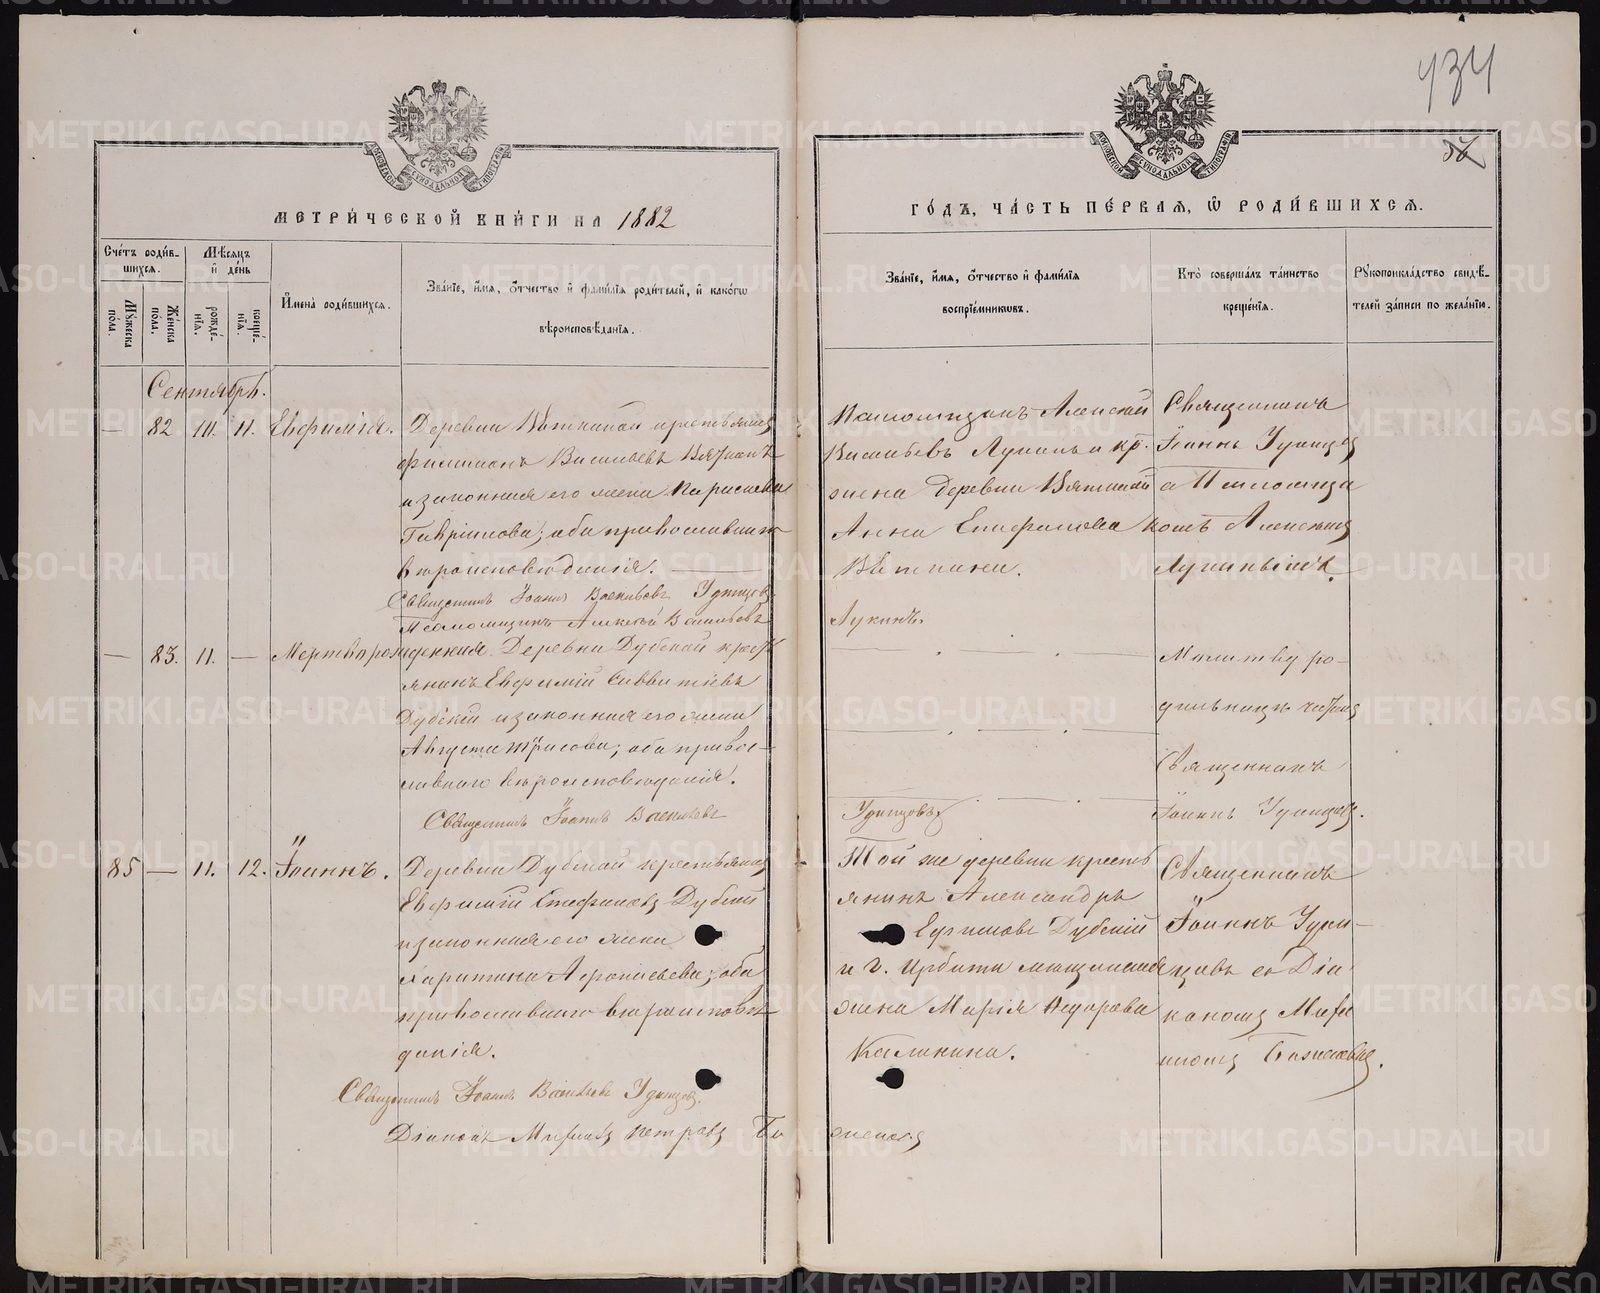 434
МЕТРИ́ЧЕСКОЙ КНИ́ГИ НА 1882
ГО́ДЪ, ЧА́СТЬ ПЕ́РВАЯ, Ѿ РОДИ́ВШИХСЯ.
Сче́тъ роди́в-
шихся.
Мѣ́сяцъ
и҆ де́нь
Мꙋ́жеска
по́ла.
Же́нска
по́ла.
рожде́-
нїя.
креще́-
нїя.
И҆мена̀ роди́вшихся.
Зва́нїе, и҆́мя, ѻ҆́тчество и҆ фами́лїя роди́телей, и҆ како́гѡ
вѣроисповѣ́данїя.
Зва́нїе, и҆́мя, ѻ҆́тчество и҆ фами́лїя
воспрїе́мникѡвъ.
Кто̀ соверша́лъ та́инство
креще́нїя.
Рꙋкоприкла́дство свидѣ́-
телей за́писи по жела́нїю.
Сентябрь.
— 82 10. 11. Евфимія. Деревни Вяткиной крестьянинъ
Васильевъ Вяткинъ
и законная его жена
Гавріилова; оба православнаго
вѣроисповѣданія.
Священникъ Іоаннъ Васильевъ Удинцовъ
Псаломщикъ Алексѣй Васильевъ
Лукинъ.
Псаломщикъ Алексѣй
Васильевъ Лукинъ и кр.
жена деревни Вяткиной
Анна Епифанова
Вяткина.
Священникъ
Іоаннъ Удинцовъ
съ Псаломщи
комъ Алексѣемъ
Лукинымъ.
— 83. 11. — Мертворожденная. Деревни Дубской кресть
янинъ Евфимій Савватіевъ
Дубскій и законная его жена
Августа; оба право-
славнаго вѣроисповѣданія.
Священникъ Іоаннъ Васильевъ
Удинцовъ
Молитву ро-
дильницѣ читалъ
Священникъ
Іоаннъ Удинцовъ.
85 — 11. 12. Іоаннъ. Деревни Дубской крестьянинъ
Евфимій Стефановъ Дубскій
и законная его жена
Харитина Афонасьева; оба
православнаго вѣроисповѣ
данія.
Священникъ Іоаннъ Васильевъ Удинцовъ.
Діаконъ Петровъ Бажено​въ
Той же деревни кресть
янинъ Александръ
Ефимовъ Дубскій
и г. Ирбити мѣщанская
жена Марія Федорова
Калинина.
Священникъ
Іоаннъ Удин-
цовъ съ Діа
кономъ
Баженовымъ.
METRIKI.GASO-URAL.RU